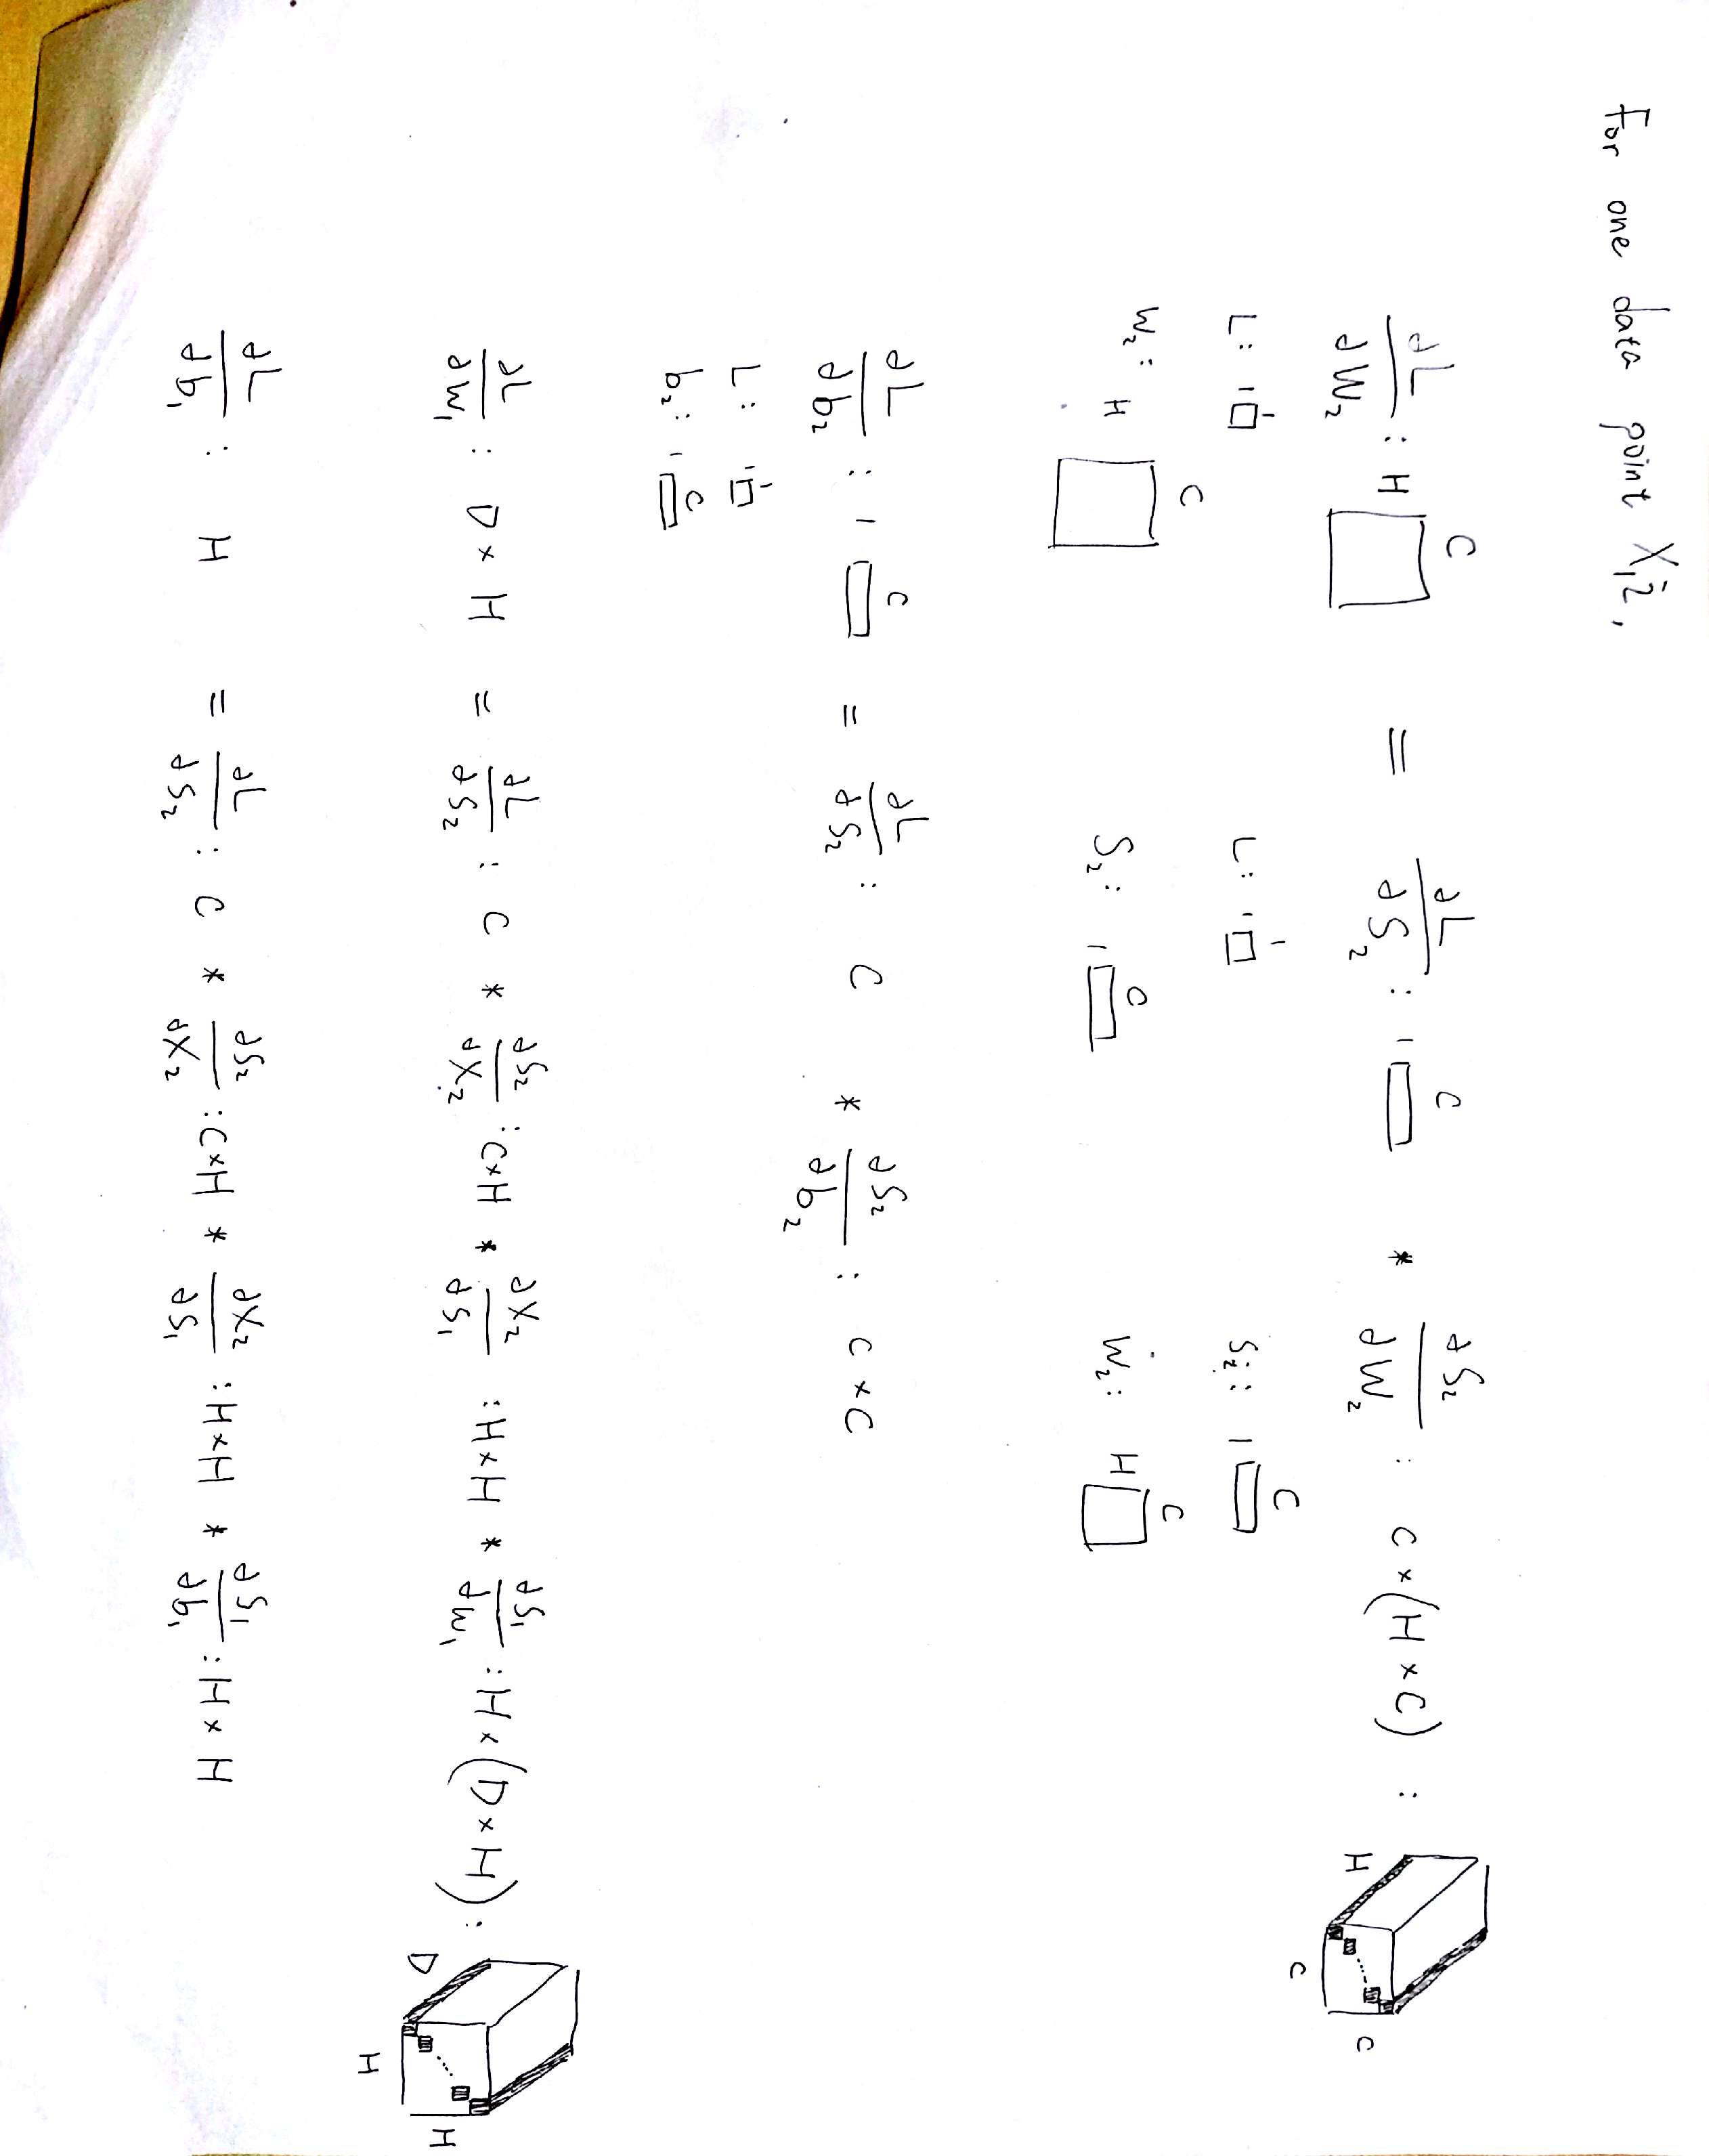 For one data point X₁ᵢ,
∂L/∂W₂ : H C = ∂L/∂S₂ : 1 C * ∂S₂/∂W₂ : C × (H × C) : H C C
L: 1 1 L: 1 1 S₂: 1 C
W₂: H C S₂: 1 C W₂: H C
∂L/∂b₂ : 1 C = ∂L/∂S₂ : C * ∂S₂/∂b₂ : C × C
L: 1 1
b₂: 1 C
∂L/∂W₁ : D × H = ∂L/∂S₂ : C * ∂S₂/∂X₂ : C×H * ∂X₂/∂S₁ : H×H * ∂S₁/∂W₁ : H×(D×H) : D H H
∂L/∂b₁ : H = ∂L/∂S₂ : C * ∂S₂/∂X₂ : C×H * ∂X₂/∂S₁ : H×H * ∂S₁/∂b₁ : H×H